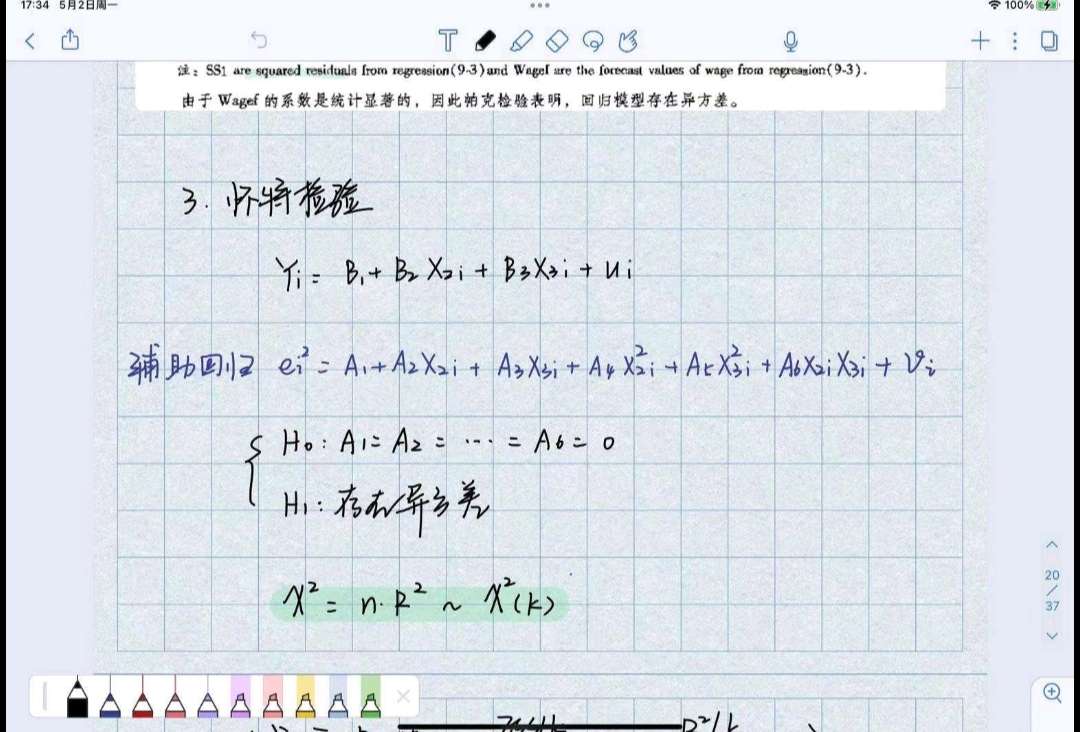 17:34 5月2日周一 100%
注：SS1 are squared residuals from regression(9-3)and Wagef are the forecast values of wage from regression(9-3).
由于 Wagef 的系数是统计显著的，因此帕克检验表明，回归模型存在异方差。
3. 怀特检验
Yi = B₁ + B₂ X₂i + B₃X₃i + ui
辅助回归 ei² = A₁ + A₂X₂i + A₃X₃i + A₄X₂i² + A₅X₃i² + A₆X₂iX₃i + vi
H₀: A₁ = A₂ = ··· = A₆ = 0
H₁: 存在异方差
χ² = n·R² ~ χ²(k)
20
/
37